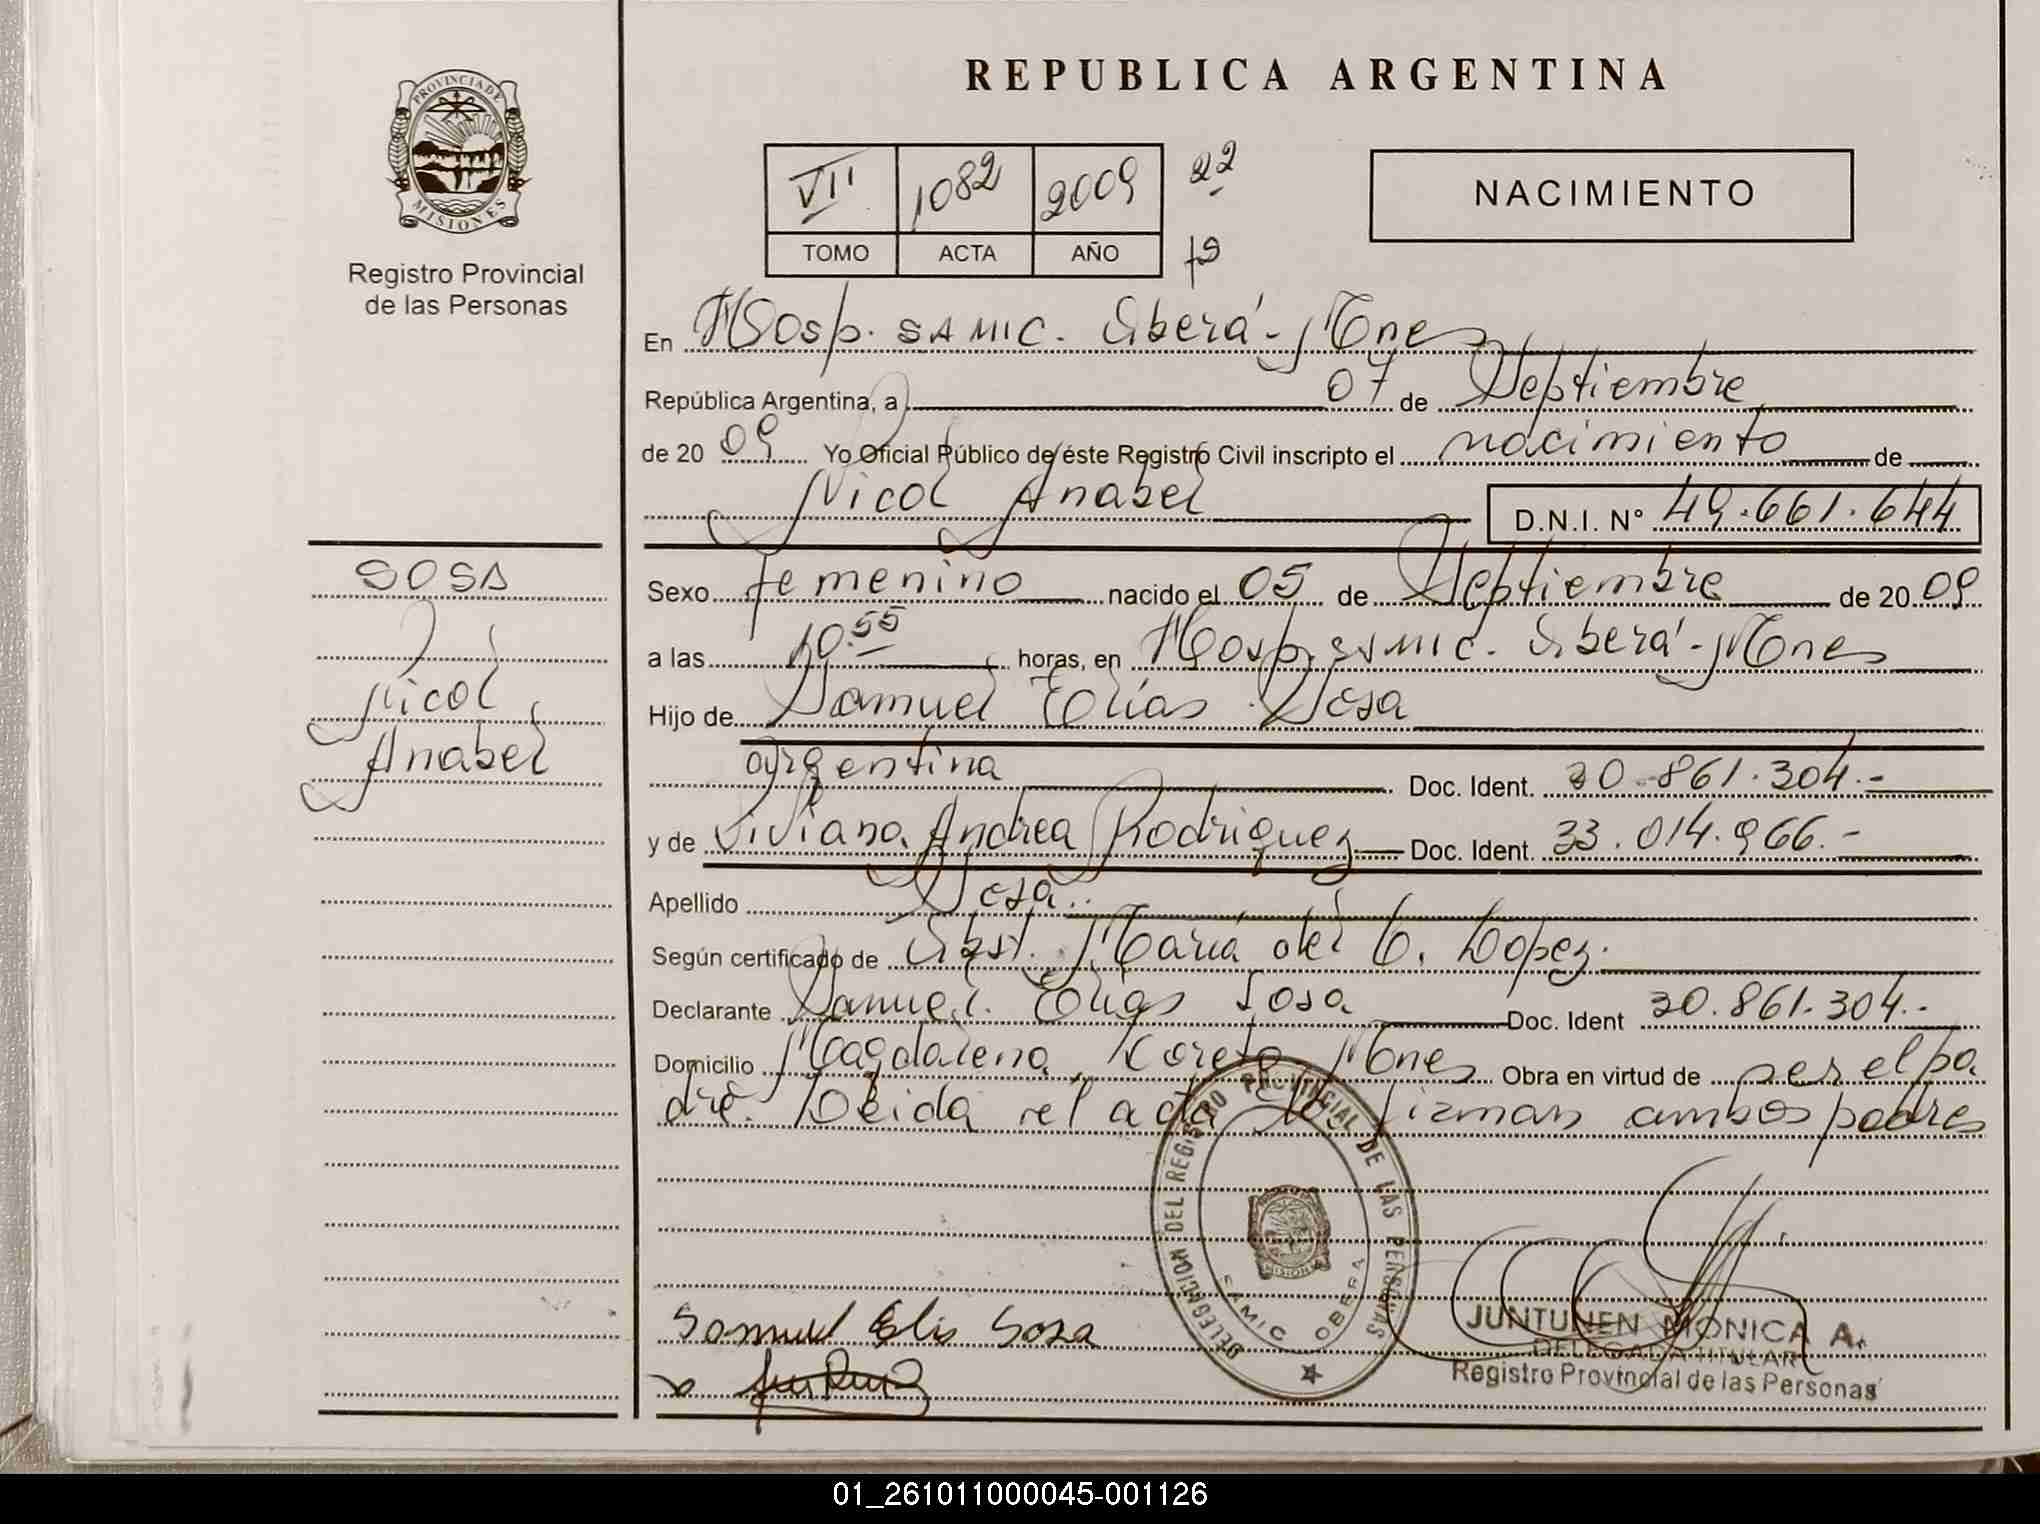 PROVINCIA DE
MISIONES
Registro Provincial
de las Personas
SOSA
Nicol
Anabel
REPUBLICA ARGENTINA
VII 1082 2009 22
TOMO ACTA AÑO
NACIMIENTO
En Hosp. SAMIC. Oberá - Mnes
República Argentina, a 07 de Septiembre
de 20 09 Yo Oficial Público de éste Registro Civil inscripto el nacimiento de
Nicol Anabel D.N.I. N° 49.661.644
Sexo femenino nacido el 05 de Septiembre de 20 09
a las 10.55 horas, en Hosp. SAMIC. Oberá - Mnes
Hijo de Samuel Elías Sosa
argentina Doc. Ident. 30.861.304.-
y de Viviana Andrea Rodriguez Doc. Ident. 33.014.966.-
Apellido Sosa..
Según certificado de Obst. María del C. Lopez.
Declarante Samuel Elías Sosa Doc. Ident 30.861.304.-
Domicilio Magdalena, Loreto Mnes Obra en virtud de ser el pa
dre. Leida el acta la firman ambos padres
DELEGACION DEL REGISTRO PROVINCIAL DE LAS PERSONAS
MISIONES
SAMIC OBERA
Samuel Elis Sosa
JUNTUNEN MONICA A.
DELEGADA TITULAR
Registro Provincial de las Personas
01_261011000045-001126